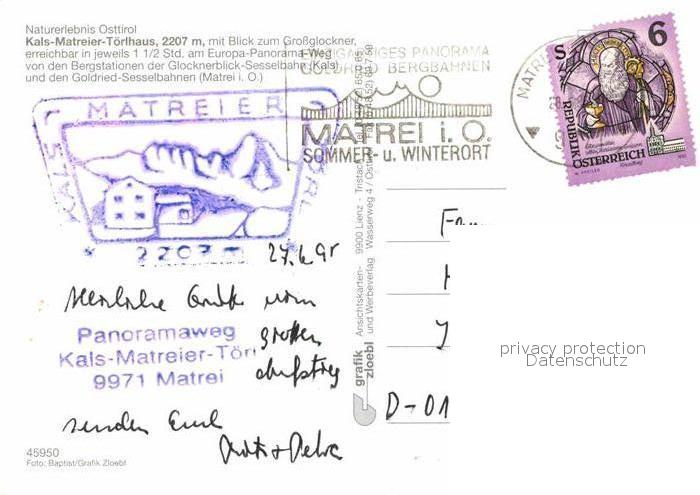 Naturerlebnis Osttirol
Kals-Matreier-Törlhaus, 2207 m, mit Blick zum Großglockner,
erreichbar in jeweils 1 1/2 Std. am Europa-Panorama-Weg
von den Bergstationen der Glocknerblick-Sesselbahn (Kals)
und den Goldried-Sesselbahnen (Matrei i. O.)
EINZIGARTIGES PANORAMA
GOLDRIED BERGBAHNEN
MATREI i. O.
SOMMER- u. WINTERORT
MATREI
6
S
REPUBLIK
ÖSTERREICH
KALS MATREIER TÖRL
* 2207 m
Herzliche Grüße vom
großen
senden Euch
Panoramaweg
Kals-Matreier-Törl
9971 Matrei
grafik
zloebl
Ansichtskarten-
und Werbeverlag
9900 Lienz - Tristach
Wasserweg 4 / Osttirol
D-01
privacy protection
Datenschutz
45950
Foto: Baptist/Grafik Zloebl